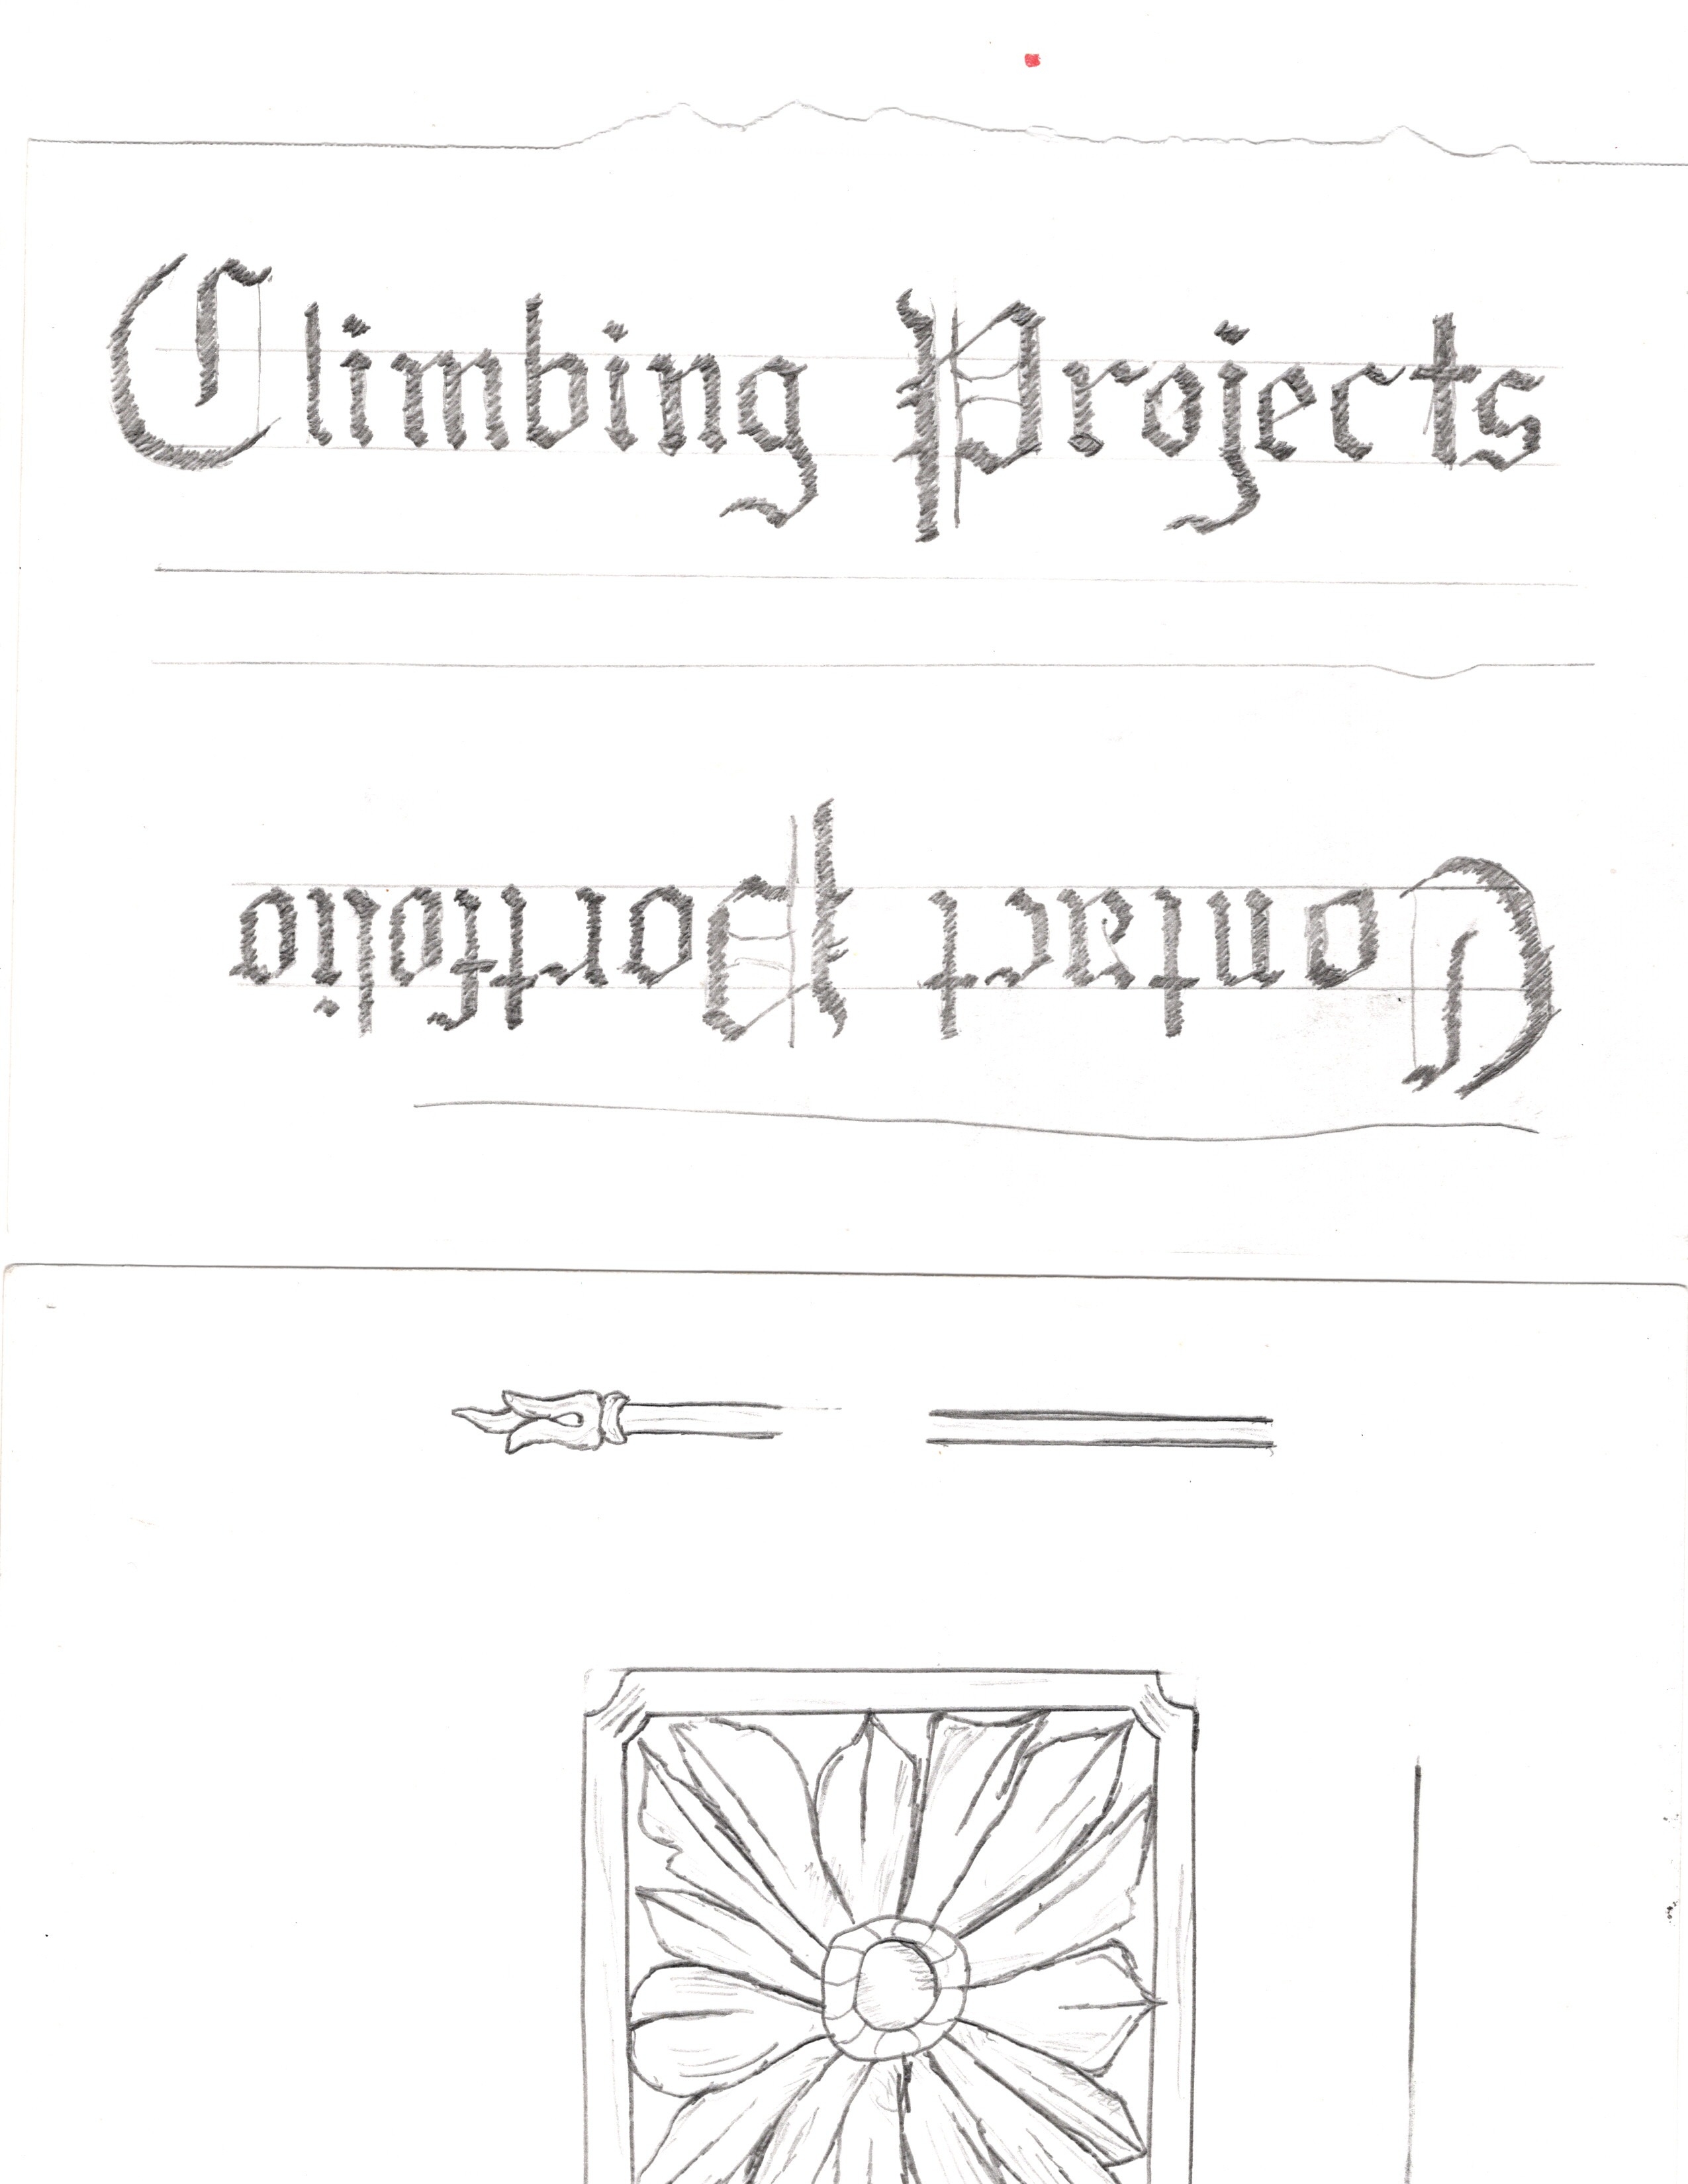 Climbing Projects
Contact Portfolio